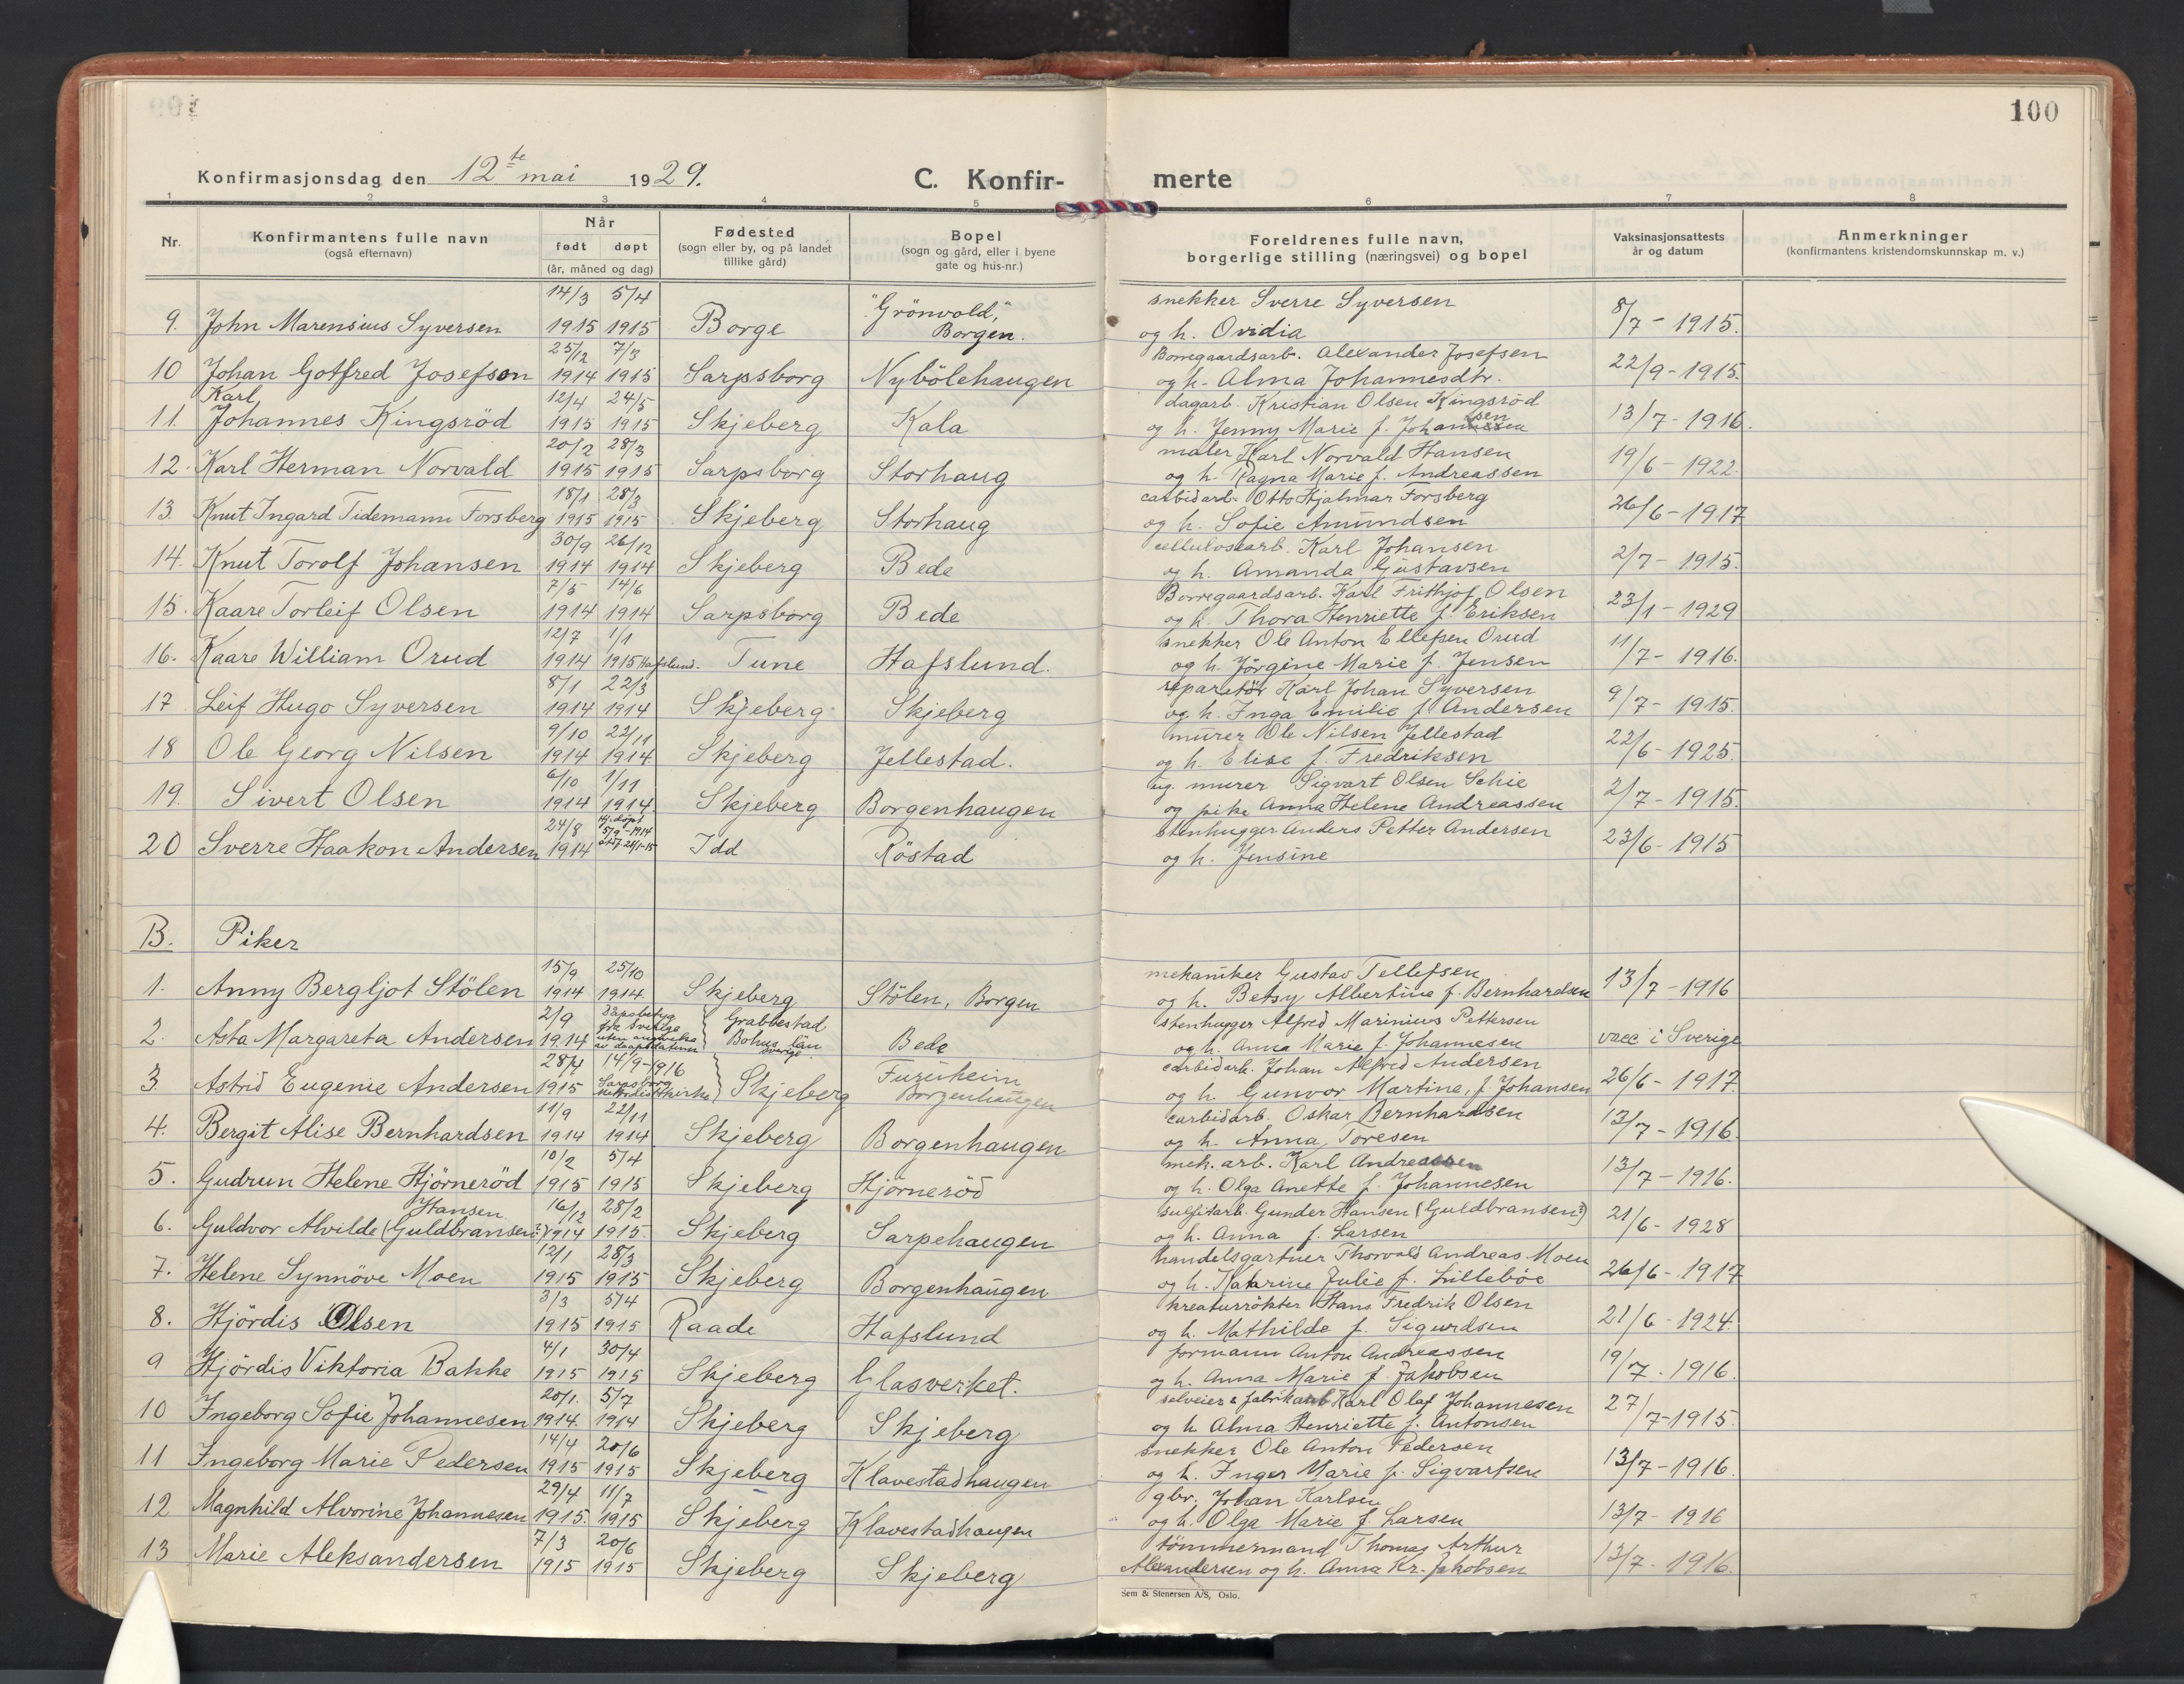 100
Konfirmasjonsdag den 12te mai 1929.
C. Konfir-merte
1 2 3 4 5 6 7 8
Nr.
Konfirmantens fulle navn
(også efternavn)
Når
født døpt
(år, måned og dag)
Fødested
(sogn eller by, og på landet
tillike gård)
Bopel
(sogn og gård, eller i byene
gate og hus-nr.)
Foreldrenes fulle navn,
borgerlige stilling (næringsvei) og bopel
Vaksinasjonsattests
år og datum
Anmerkninger
(konfirmantens kristendomskunnskap m. v.)
14/3 5/4 "Grönvold," snekker Sverre Syversen
9. John Marensius Syversen 1915 1915 Borge Borgen. og h. Ovidia 8/7 - 1915.
25/12 7/3 Borregaardsarb. Alexander Josefsen
10 Johan Gotfred Josefson 1914 1915 Sarpsborg Nybölehaugen og h. Alma Johannesdtr. 22/9 - 1915.
Karl, 12/4 24/5 dagarb. Kristian Olsen Kingsröd
11. Johannes Kingsröd 1915 1915 Skjeberg Kala og h. Jenny Marie f. Johansen 13/7 - 1916.
20/2 28/3 maler Karl Norvald Hansen
12. Karl Herman Norvald 1915 1915 Sarpsborg Storhaug og h. Ragna Marie f. Andreassen 19/6 - 1922.
18/1 28/3 carbidarb. Otto Hjalmar Forsberg
13. Knut Ingard Tidemann Forsberg 1915 1915 Skjeberg Storhaug og h. Sofie Amundsen 26/6 - 1917
30/9 26/12 cellulosearb. Karl Johansen
14. Knut Torolf Johansen 1914 1914 Skjeberg Bede og h. Amanda Gustavsen 2/7 - 1915.
7/5 14/6 Borregaardsarb. Karl Frithjof Olsen
15. Kaare Torleif Olsen 1914 1914 Sarpsborg Bede og h. Thora Henriette f. Eriksen 23/1 - 1929
12/7 1/1 snekker Ole Anton Ellefsen Orud
16. Kaare William Orud 1914 1915 Hafslund. Tune Hafslund. og h. Jörgine Marie f. Jensen 11/7 - 1916.
8/1 22/3 reparatör Karl Johan Syversen
17 Leif Hugo Syversen 1914 1914 Skjeberg Skjeberg og h. Inga Emilie f. Andersen 9/7 - 1915.
9/10 22/11 murer Ole Nilsen Jellestad
18 Ole Georg Nilsen 1914 1914 Skjeberg Jellestad. og h. Elise f. Fredriksen 22/6 - 1925.
6/10 1/11 ug. murer Sigvart Olsen Schie
19. Sivert Olsen 1914 1914 Skjeberg Borgenhaugen og pike Anna Helene Andreassen 2/7 - 1915.
24/8 Hj. döpt 5/9-1914 stenhugger Anders Petter Andersen
20 Sverre Haakon Andersen 1914 Idd Röstad og h. Jensine 23/6 - 1915
B. Piker
15/9 25/10 mekaniker Gustav Tellefsen
1. Anny Bergljot Stölen 1914 1914 Skjeberg Stölen, Borgen og h. Betsy Albertine f. Bernhardsen 13/7 - 1916
2/9 Dåpsbetyg fra Sverige Grabbestad stenhugger Alfred Marinius Pettersen
2. Asta Margareta Andersen 1914 av daapsdatum Bohus län Sverige Bede og h. Anna Marie f. Johannesen vacc i Sverige
28/4 14/9-1916 Furuheim carbidarb. Johan Alfred Andersen
3. Astrid Eugenie Andersen 1915 Sarpsborg Metodistkirke Skjeberg Borgenhaugen og h. Gunvor Martine, f. Johansen 26/6 - 1917.
11/9 22/11 carbidarb. Oskar Bernhardsen
4. Bergit Alise Bernhardsen 1914 1914 Skjeberg Borgenhaugen og h. Anna Toresen 13/7 - 1916.
10/2 5/4 mek. arb. Karl Andreassen
5. Gudrun Helene Hjörneröd 1915 1915 Skjeberg Hjörneröd og h. Olga Anette f. Johannesen 13/7 - 1916.
Hansen 16/12 28/2 sulfitarb. Gunder Hansen (Guldbransen?)
6. Guldvor Alvilde (Guldbransen?) 1914 1915. Skjeberg Sarpehaugen og h. Anna f. Larsen 21/6 - 1928
12/1 28/3 handelsgartner Thorvald Andreas Moen
7. Helene Synnöve Moen 1915 1915 Skjeberg Borgenhaugen og h. Katrine Julie f. Lilleböe 26/6 - 1917
3/3 5/4 kreaturrökter Hans Fredrik Olsen
8. Hjördis Olsen 1915 1915 Raade Hafslund og h. Mathilde f. Sigurdsen 21/6 - 1924.
4/1 30/4 formann Anton Andreassen
9 Hjördis Viktoria Bakke 1915 1915 Skjeberg Glasverket. og h. Anna Marie f. Jakobsen 19/7 - 1916.
20/1. 5/7 selveier & fabrikarb Karl Olaf Johannesen
10 Ingeborg Sofie Johannesen 1914. 1914 Skjeberg Skjeberg og h. Alma Henriette f. Antonsen 27/7-1915.
14/4 20/6 snekker Ole Anton Pedersen
11 Ingeborg Marie Pedersen 1915 1915 Skjeberg Klavestadhaugen og h. Inger Marie f. Sigvartsen 13/7 - 1916.
29/4 11/7 gbr. Johan Karlsen
12 Magnhild Alvorine Johannesen 1915. 1915 Skjeberg Klavestadhaugen og h. Olga Marie f. Larsen 13/7 - 1916
7/3 20/6 tömmermand Thomas Arthur
13 Marie Aleksandersen 1915 1915 Skjeberg Skjeberg Alexandersen og h. Anna Kr. Jakobsen 13/7 - 1916.
Sem & Stenersen A/S, Oslo.